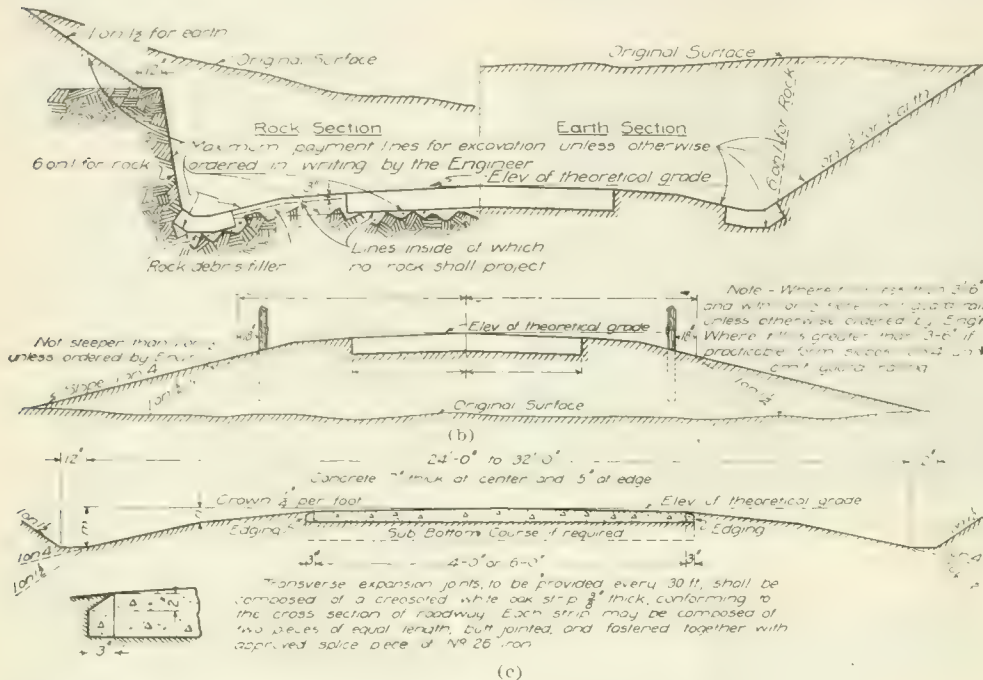 1 on 1½ for earth
12"
Original Surface
Original Surface
Rock Section
Earth Section
Maximum payment lines for excavation unless otherwise
ordered in writing by the Engineer
6 on 1 for rock
6 on 1 for Rock
1 on 1½ for Earth
Elev of theoretical grade
Rock debris filler
Lines inside of which
no rock shall project
Note - Where than 3'-6"
and with
unless otherwise ordered by
Where greater than 3'-6" if
practicable form
omit guard
Not steeper than
unless ordered by
18"
Elev of theoretical grade
18"
Slope 1 on 4
Original Surface
(b)
12"
24'-0" to 32'-0"
Concrete thick at center and 5" at edge
Crown ¼" per foot
Elev of theoretical grade
1 on 1½
1 on 4
1 on 1½
Edging
Sub Bottom Course if required
Edging
3"
4-0" or 6-0"
3"
Transverse expansion joints, to be provided every 30 ft, shall be
composed of a creosoted white oak strip thick, conforming to
the cross section of roadway Each strip may be composed of
two pieces of equal length, butt jointed, and fastened together with
approved splice piece of Nº 26 iron
2"
3"
(c)